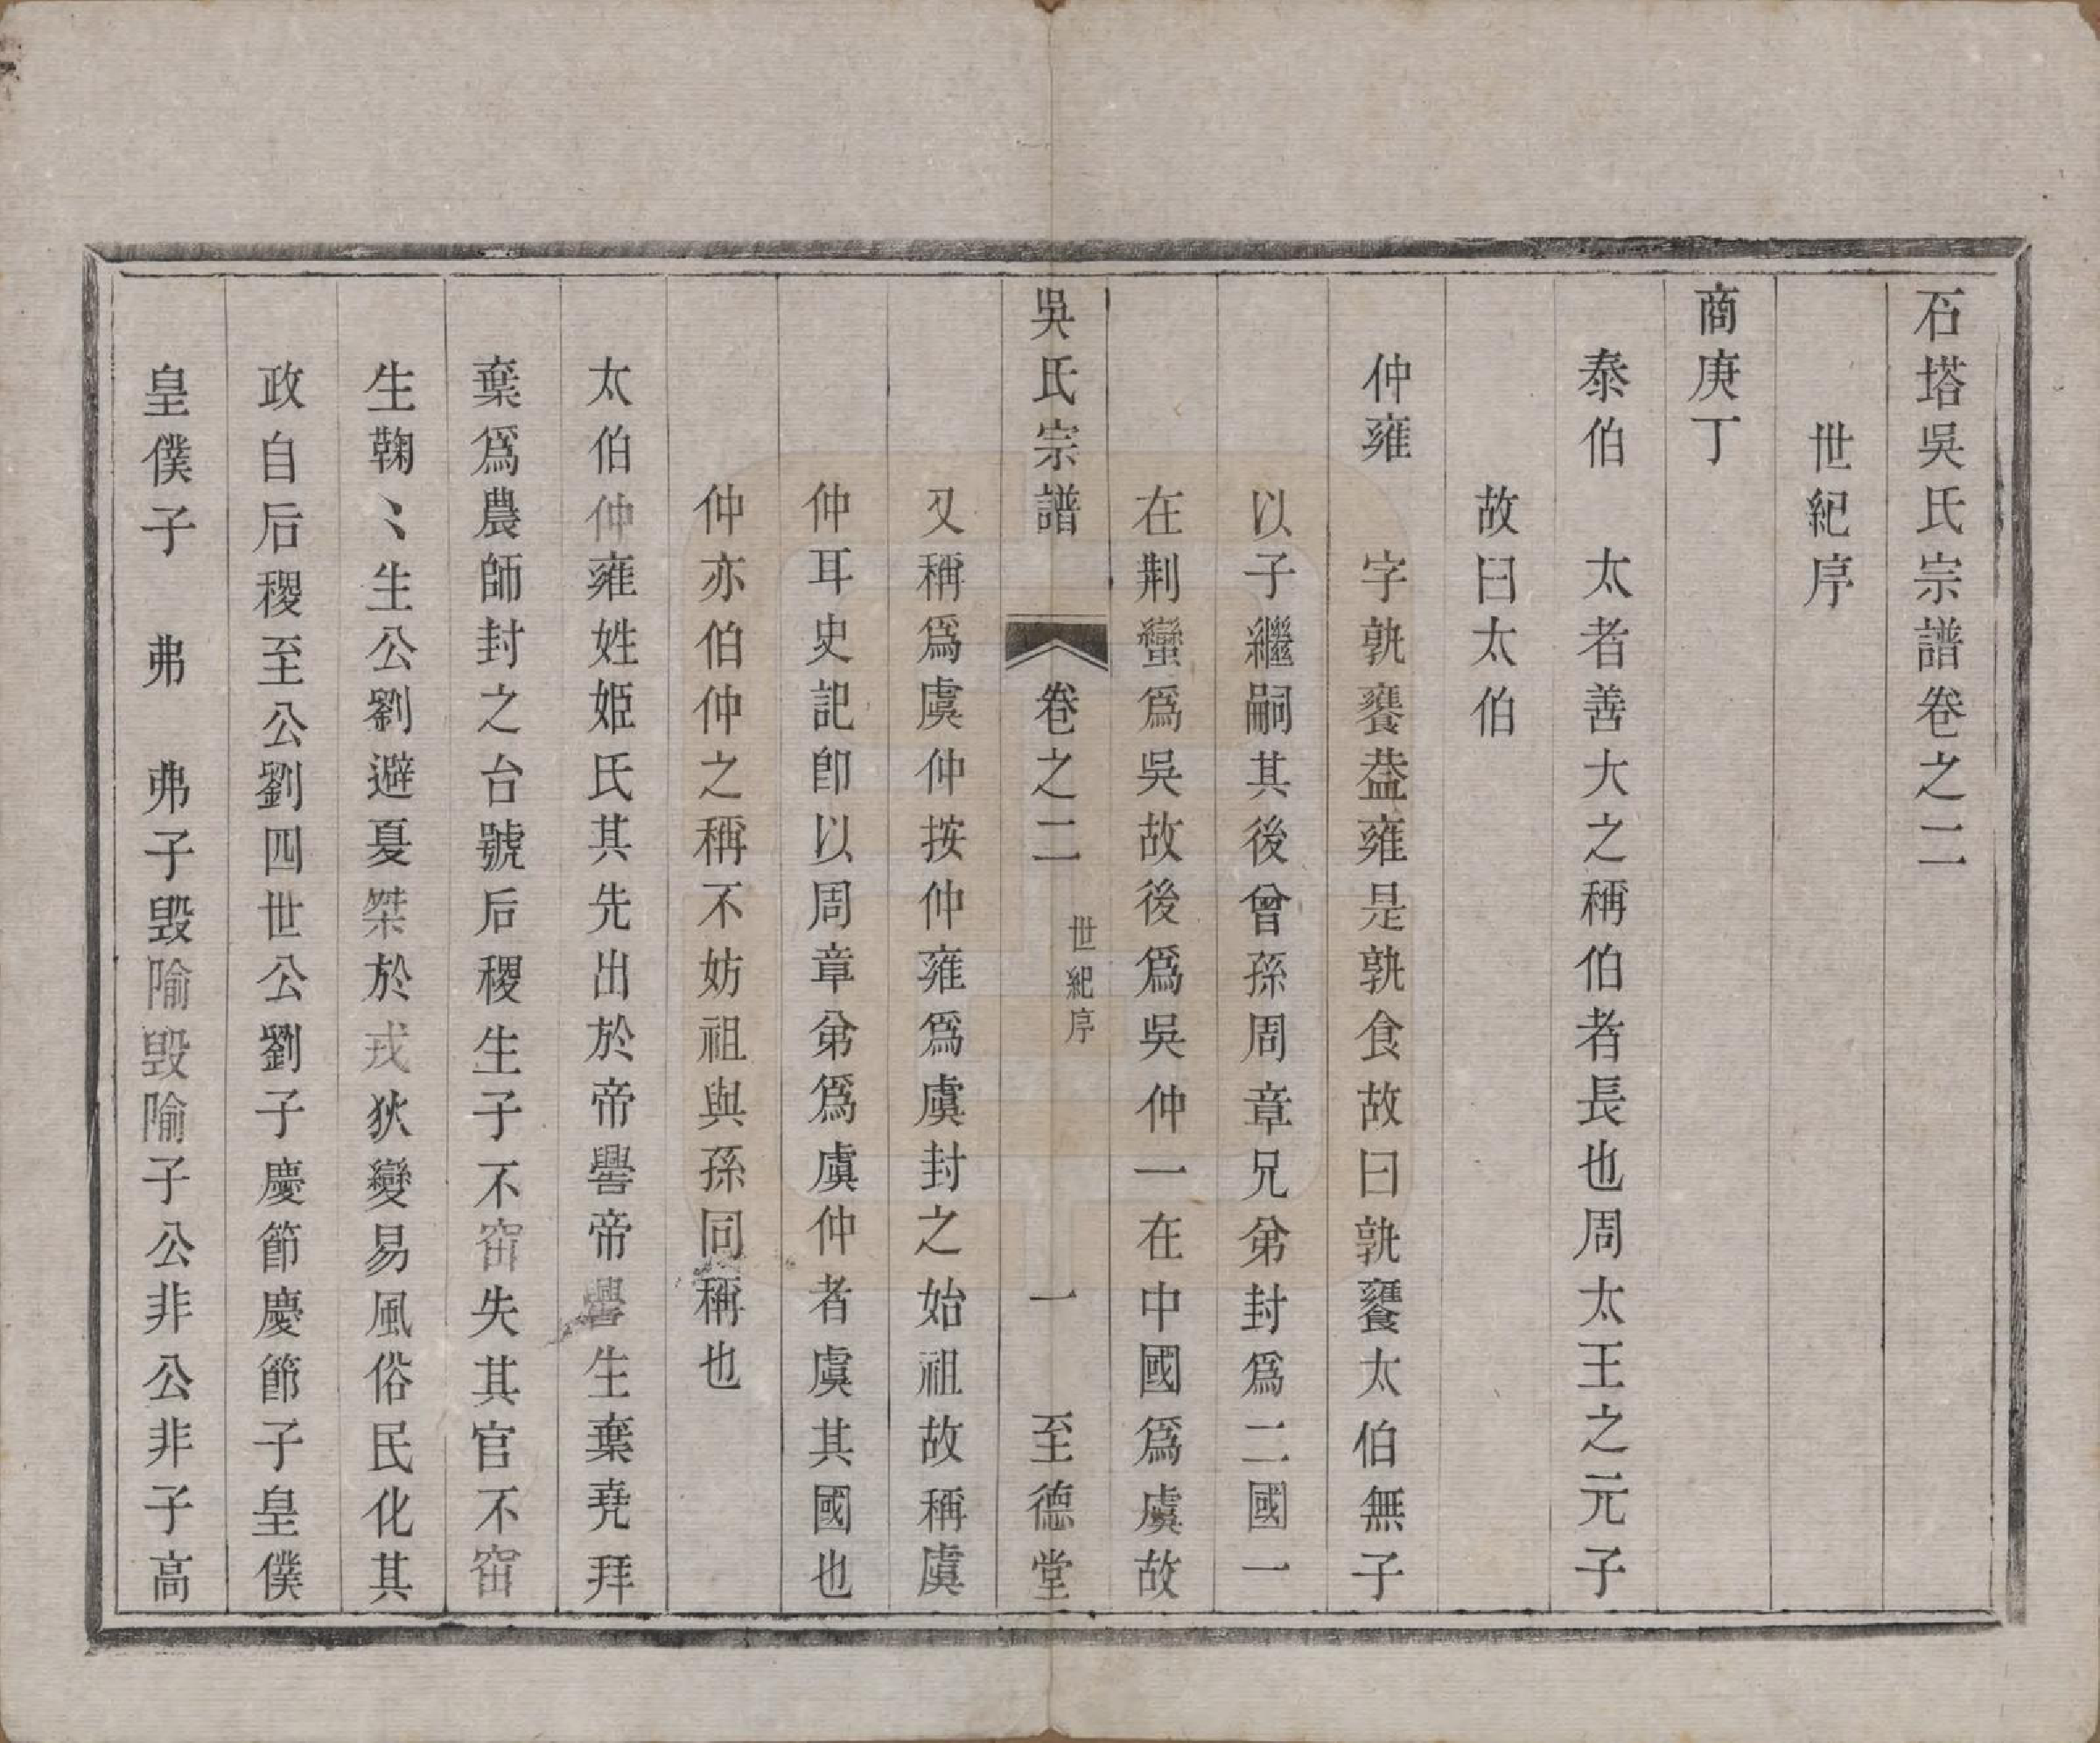 石塔吳氏宗譜卷之二
世紀序
商庚丁
泰伯　太者善大之稱伯者長也周太王之元子
故曰太伯
仲雍　字孰饔葢雍是孰食故曰孰饔太伯無子
以子繼嗣其後曾孫周章兄弟封爲二國一
在荆蠻爲吳故後爲吳仲一在中國爲虞故
吳氏宗譜　卷之二　世紀序　一　至德堂
又稱爲虞仲按仲雍爲虞封之始祖故稱虞
仲耳史記卽以周章弟爲虞仲者虞其國也
仲亦伯仲之稱不妨祖與孫同稱也
太伯仲雍姓姬氏其先出於帝嚳帝嚳生棄堯拜
棄爲農師封之台號后稷生子不窋失其官不窋
生鞠〻生公劉避夏桀於戎狄變易風俗民化其
政自后稷至公劉四世公劉子慶節慶節子皇僕
皇僕子　弗　弗子毀隃毀隃子公非公非子高